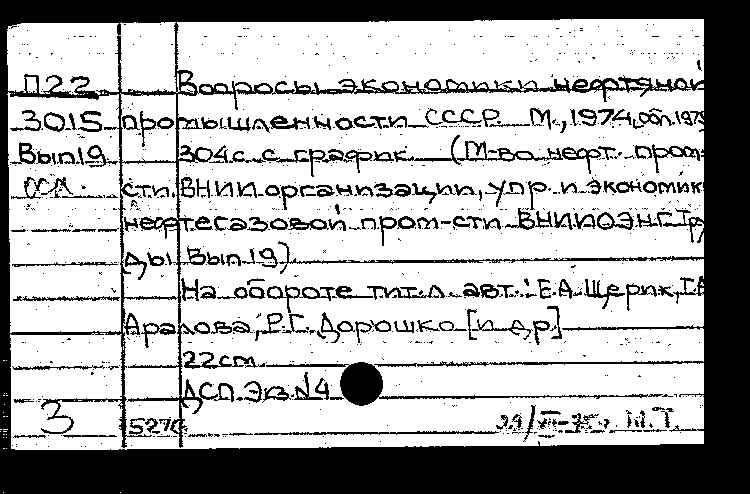 П22 Вопросы экономики нефтяной
3015 промышленности СССР. М., 1974, обл. 1975
Вып19 304с. с график. (М-во нефт. пром-
сти. ВНИИ организации, упр. и экономик
нефтегазовой пром-сти ВНИИОЭНГ. Тру
ды Вып 19)
На обороте тит. л. авт.: Е.А. Щерик, Г.А
Аралова, Р.Г. Дорошко [и др.]
22 см
ДСП. Экз. №4
3 5276 М.Т.